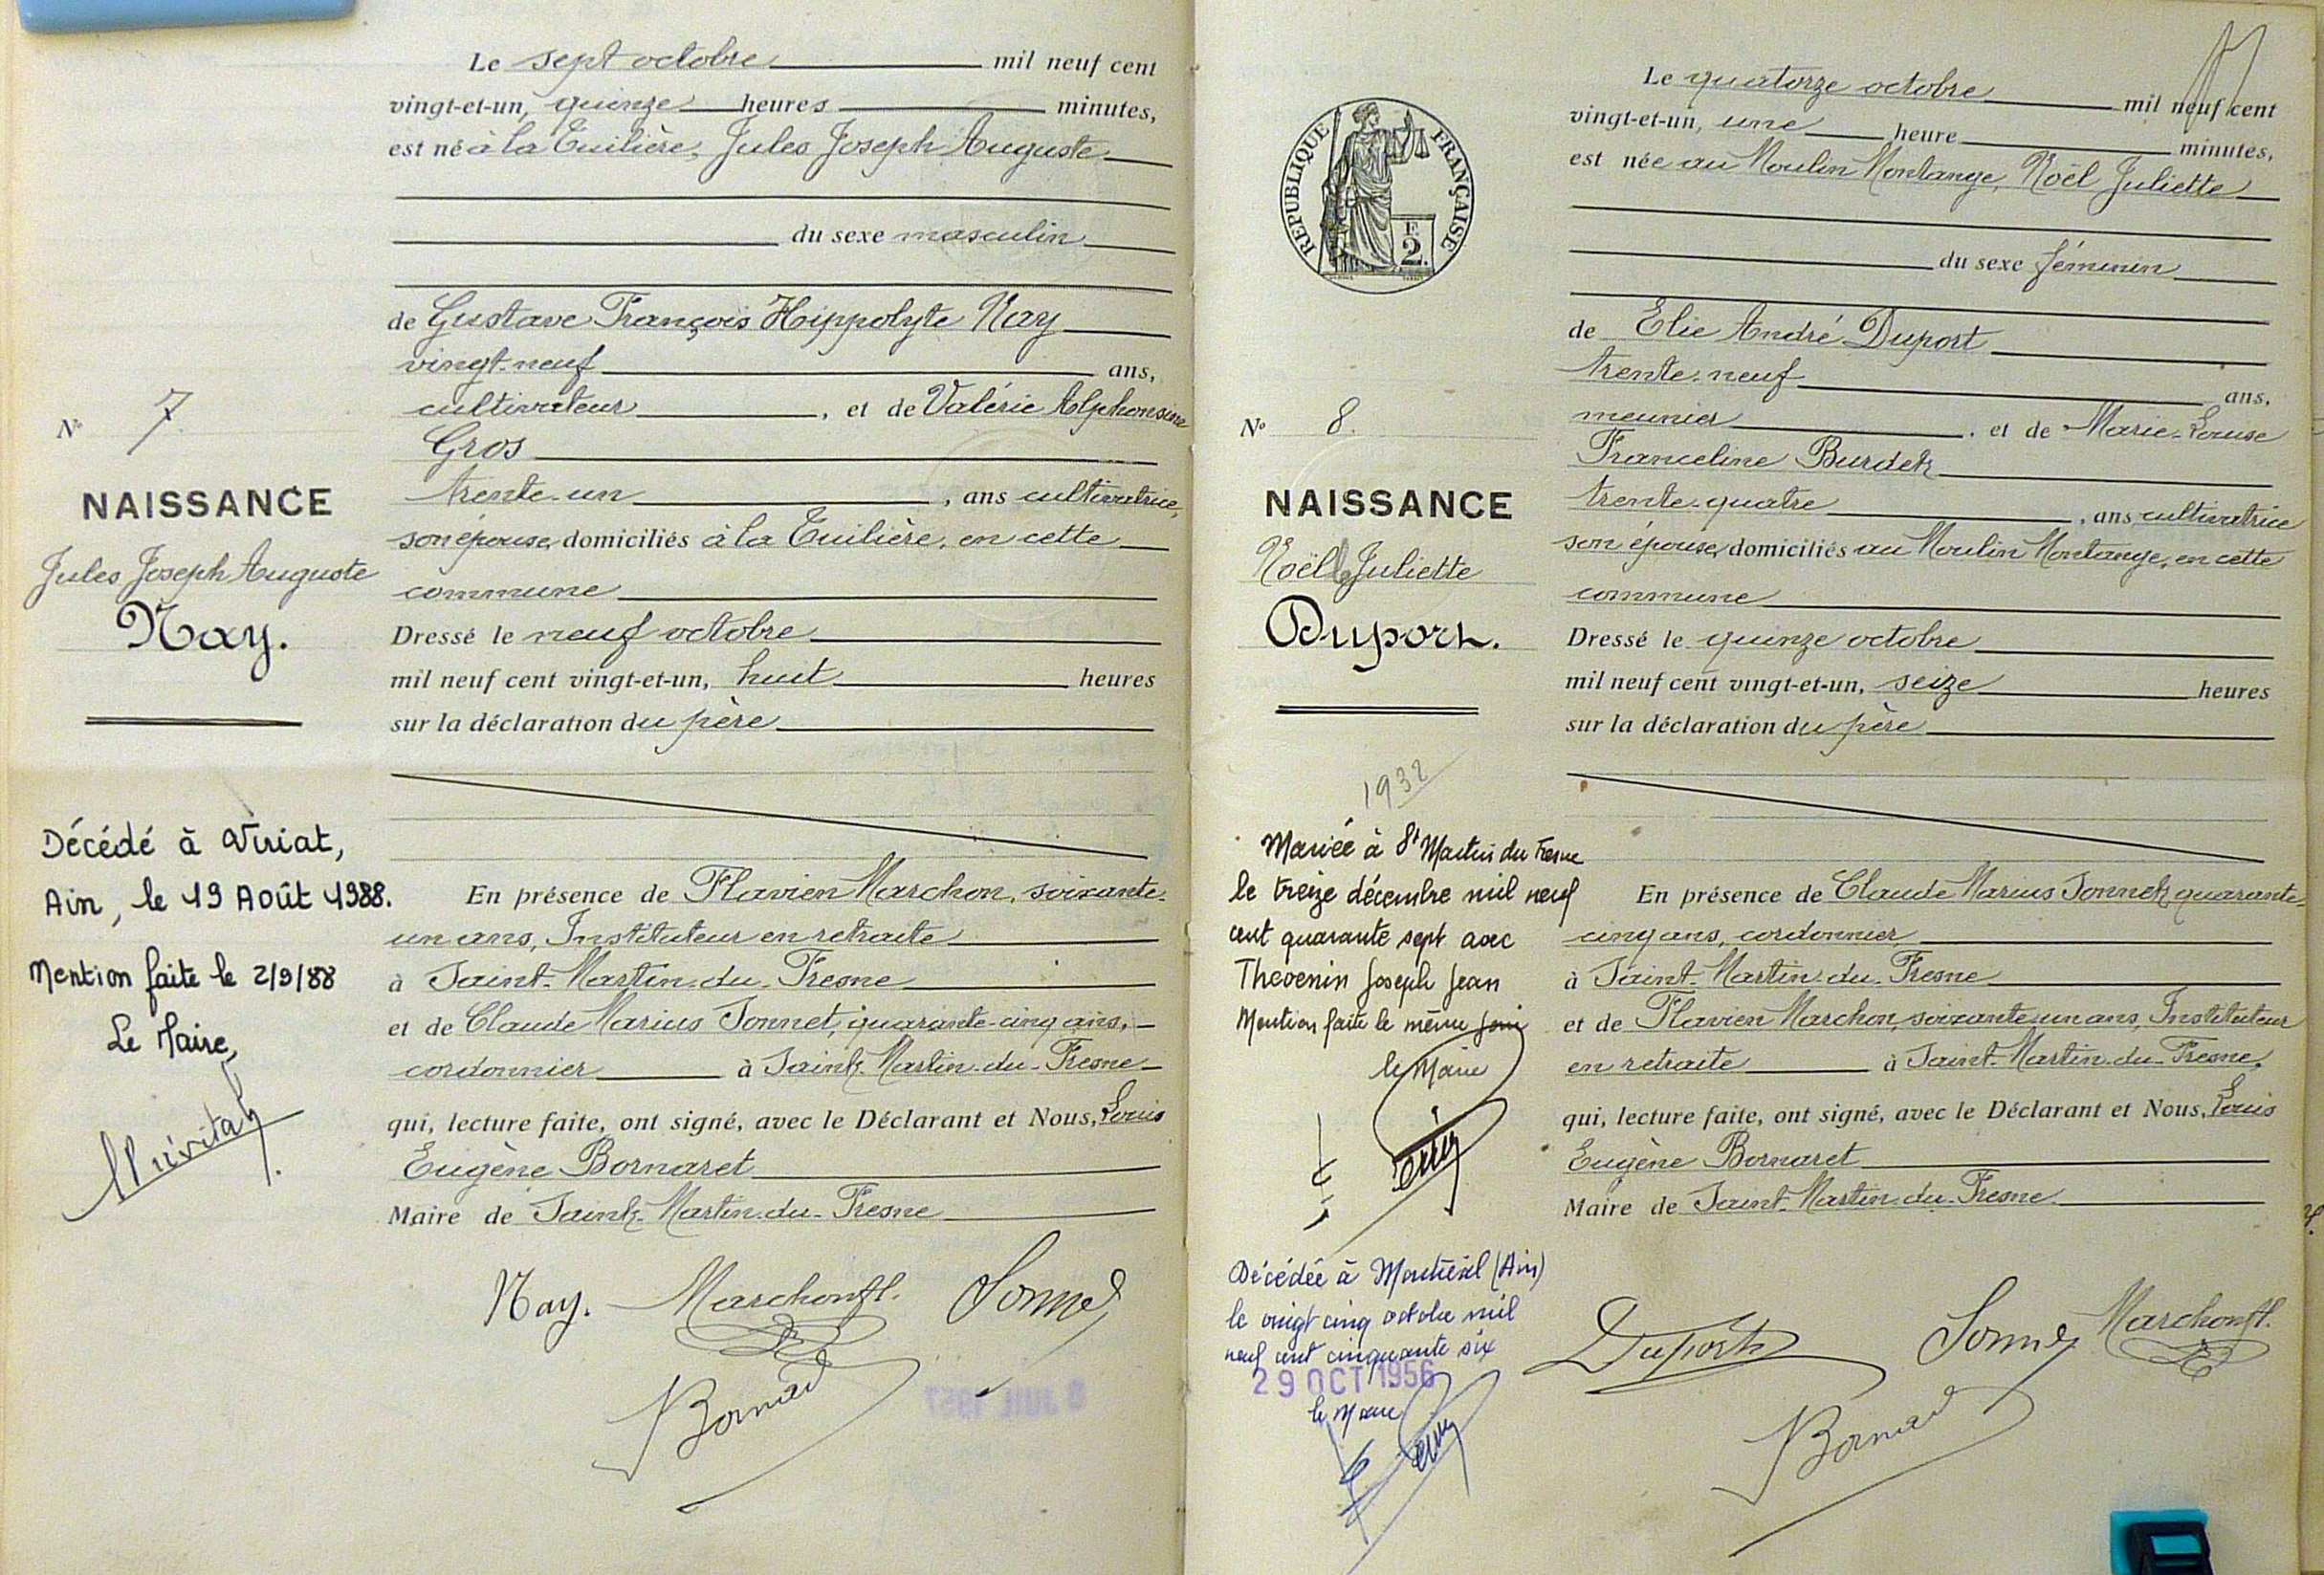 Le sept octobre mil neuf cent
vingt-et-un, quinze heures minutes,
est né à la Tuilière, Jules Joseph Auguste
du sexe masculin
de Gustave François Hippolyte Nay
vingt-neuf ans,
cultivateur, et de Valérie Alphonsine
Gros
trente-un, ans cultivatrice,
son épouse, domiciliés à la Tuilière, en cette
commune
Dressé le neuf octobre
mil neuf cent vingt-et-un, huit heures
sur la déclaration du père
En présence de Flavien Marchon, soixante-
un ans, Instituteur en retraite
à Saint-Martin-du-Fresne
et de Claude Marius Sonnet, quarante-cinq ans,
cordonnier à Saint-Martin-du-Fresne
qui, lecture faite, ont signé, avec le Déclarant et Nous, Louis
Eugène Bornaret
Maire de Saint-Martin-du-Fresne
Nay. Marchon fl. Sonnet
Bornaret
N° 7.
NAISSANCE
Jules Joseph Auguste
Nay.
Décédé à Viriat,
Ain, le 19 Août 1988.
Mention faite le 2/9/88
Le Maire,
Le quatorze octobre mil neuf cent
vingt-et-un, une heure minutes,
est née au Moulin Montange, Noël Juliette
du sexe féminin
de Elie André Duport
trente-neuf ans,
meunier, et de Marie-Louise
Franceline Burdet
trente-quatre, ans cultivatrice
son épouse, domiciliés au Moulin Montange, en cette
commune
Dressé le quinze octobre
mil neuf cent vingt-et-un, seize heures
sur la déclaration du père
En présence de Claude Marius Sonnet, quarante-
cinq ans, cordonnier
à Saint-Martin-du-Fresne
et de Flavien Marchon, soixante-un ans, Instituteur
en retraite à Saint-Martin-du-Fresne,
qui, lecture faite, ont signé, avec le Déclarant et Nous, Louis
Eugène Bornaret
Maire de Saint-Martin-du-Fresne
Duport Sonnet Marchon fl.
Bornaret
REPUBLIQUE FRANÇAISE
F.
2.
N° 8.
NAISSANCE
Noël Juliette
Duport.
1932
Mariée à St Martin du Fresne
le treize décembre mil neuf
cent quarante sept avec
Thevenin Joseph Jean
Mention faite le même jour
le Maire
Décédée à Montréal (Ain)
le vingt cinq octobre mil
neuf cent cinquante six
29 OCT 1956
le Maire